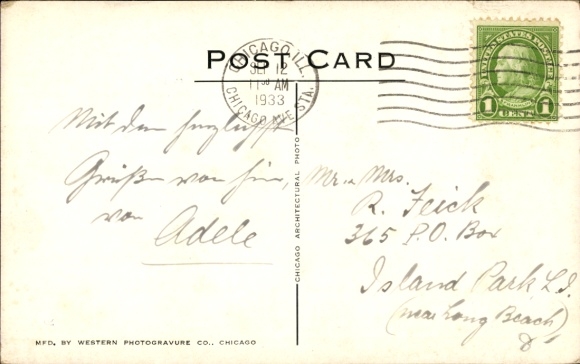 POST CARD
CHICAGO, ILL.
SEP 12
11 30 AM
1933
CHICAGO AVE STA.
UNITED STATES POSTAGE
1 1
CENT
Mit den herzlichsten
Grüßen von hier,
von
Adele
CHICAGO ARCHITECTURAL PHOTO
Mr. & Mrs.
R. Feick
365 P.O. Box
Island Park L.I.
(near Long Beach)
MFD. BY WESTERN PHOTOGRAVURE CO., CHICAGO